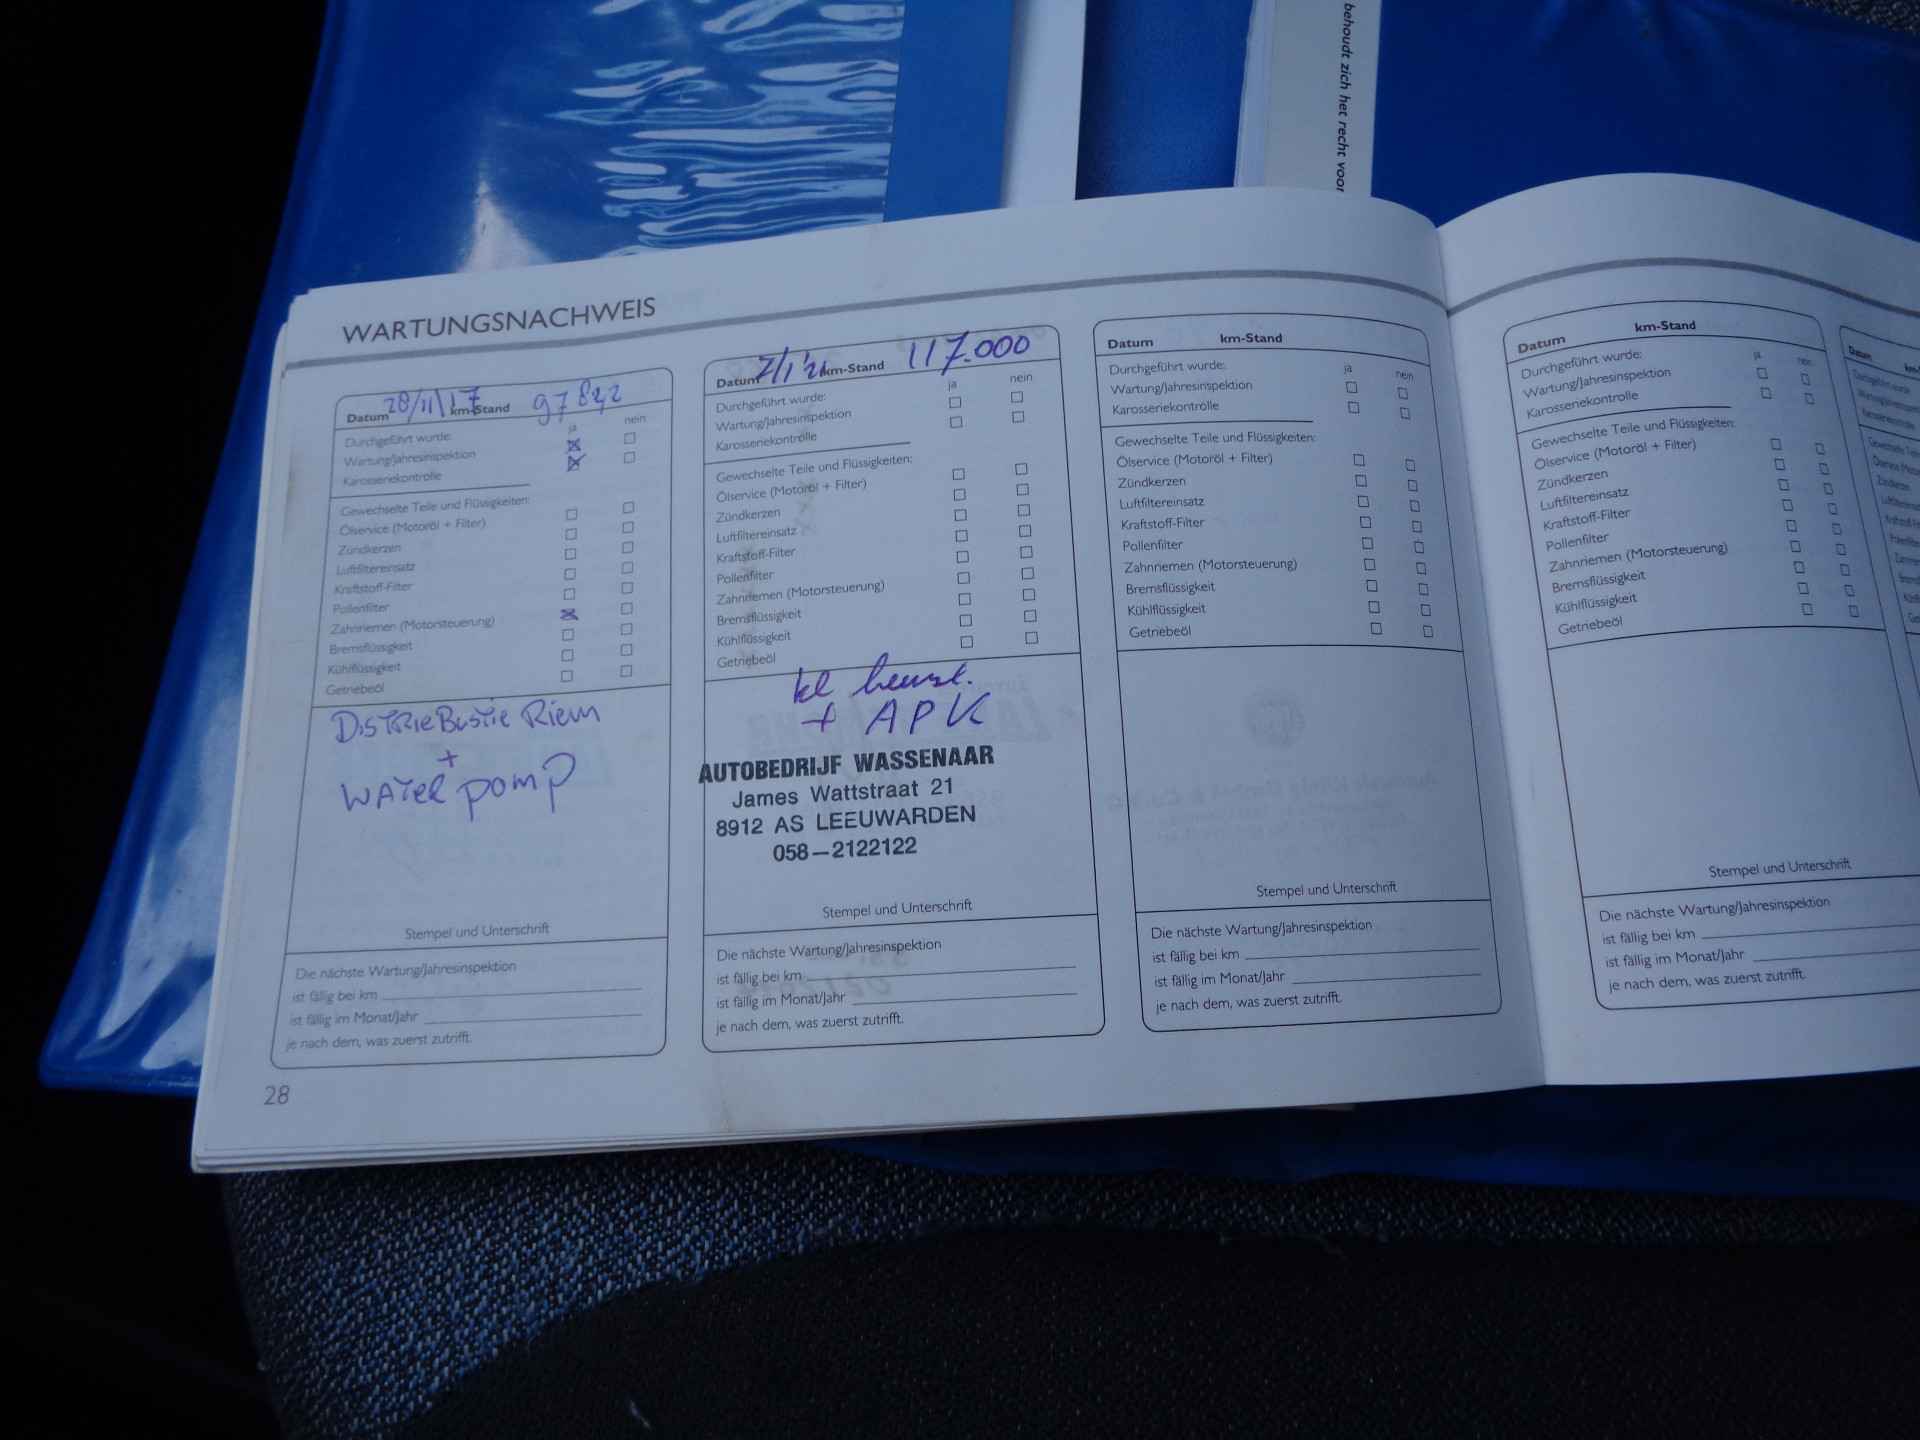 behoudt zich het recht voor
WARTUNGSNACHWEIS
Datum 28/11/17 km-Stand 97822
ja nein
Durchgeführt wurde:
Wartung/Jahresinspektion
Karosseriekontrolle
Gewechselte Teile und Flüssigkeiten:
Ölservice (Motoröl + Filter)
Zündkerzen
Luftfiltereinsatz
Kraftstoff-Filter
Pollenfilter
Zahnriemen (Motorsteuerung)
Bremsflüssigkeit
Kühlflüssigkeit
Getriebeöl
DISTRIEBUSTIE RIEM
+
WATER POMP
Stempel und Unterschrift
Die nächste Wartung/Jahresinspektion
ist fällig bei km
ist fällig im Monat/Jahr
je nach dem, was zuerst zutrifft.
28
Datum 7/1'21 km-Stand 117.000
ja nein
Durchgeführt wurde:
Wartung/Jahresinspektion
Karosseriekontrolle
Gewechselte Teile und Flüssigkeiten:
Ölservice (Motoröl + Filter)
Zündkerzen
Luftfiltereinsatz
Kraftstoff-Filter
Pollenfilter
Zahnriemen (Motorsteuerung)
Bremsflüssigkeit
Kühlflüssigkeit
Getriebeöl
kl beurt.
+ APK
AUTOBEDRIJF WASSENAAR
James Wattstraat 21
8912 AS LEEUWARDEN
058-2122122
Stempel und Unterschrift
Die nächste Wartung/Jahresinspektion
ist fällig bei km
ist fällig im Monat/Jahr
je nach dem, was zuerst zutrifft.
Datum km-Stand
Durchgeführt wurde:
ja nein
Wartung/Jahresinspektion
Karosseriekontrolle
Gewechselte Teile und Flüssigkeiten:
Ölservice (Motoröl + Filter)
Zündkerzen
Luftfiltereinsatz
Kraftstoff-Filter
Pollenfilter
Zahnriemen (Motorsteuerung)
Bremsflüssigkeit
Kühlflüssigkeit
Getriebeöl
Stempel und Unterschrift
Die nächste Wartung/Jahresinspektion
ist fällig bei km
ist fällig im Monat/Jahr
je nach dem, was zuerst zutrifft.
Datum km-Stand
Durchgeführt wurde:
ja nein
Wartung/Jahresinspektion
Karosseriekontrolle
Gewechselte Teile und Flüssigkeiten:
Ölservice (Motoröl + Filter)
Zündkerzen
Luftfiltereinsatz
Kraftstoff-Filter
Pollenfilter
Zahnriemen (Motorsteuerung)
Bremsflüssigkeit
Kühlflüssigkeit
Getriebeöl
Stempel und Unterschrift
Die nächste Wartung/Jahresinspektion
ist fällig bei km
ist fällig im Monat/Jahr
je nach dem, was zuerst zutrifft.
Datum